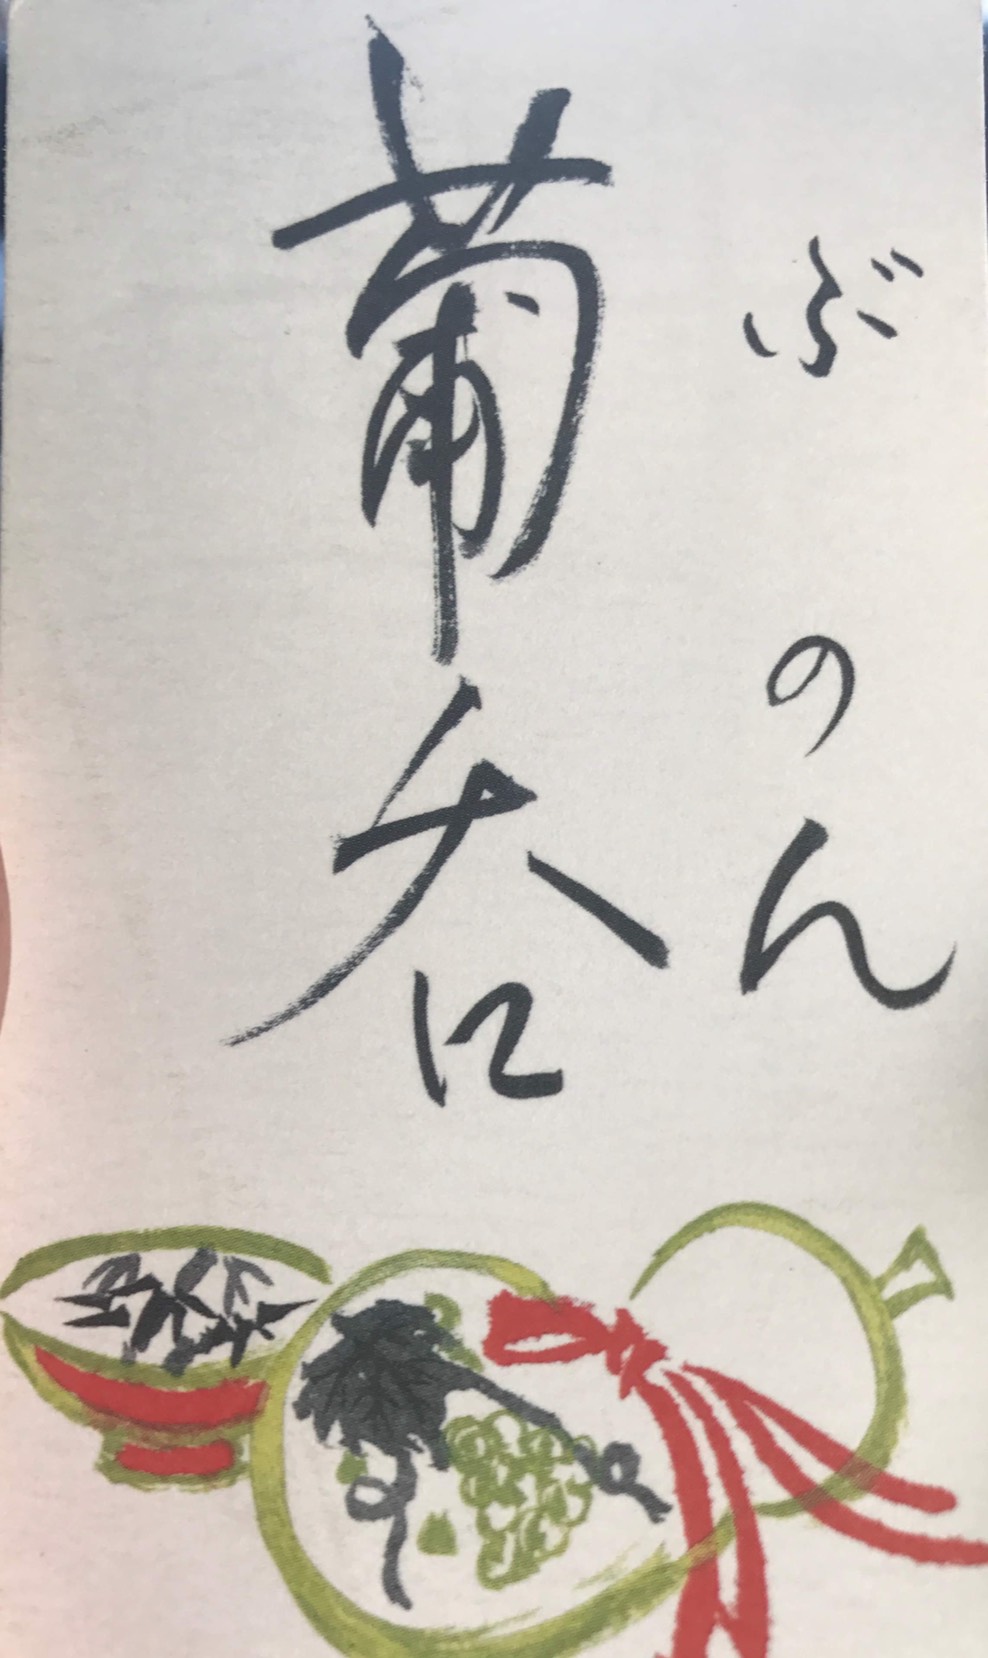 ぶのん
葡呑